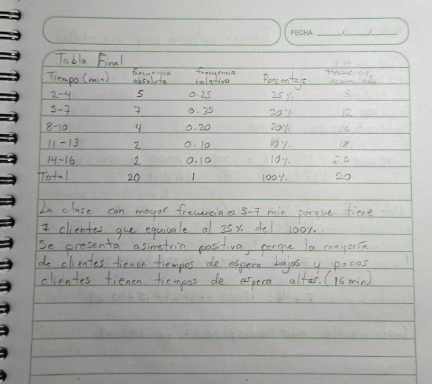 FECHA
Tabla Final
Tiempo (min) frecuencia absoluta frecuencia relativa Porcentaje frecuencia acumulada
2-4 5 0.25 25% 5
5-7 7 0.35 12
8-10 4 0.20 20% 16
11-13 2 0.10 10% 18
14-16 2 0.10 10% 20
Total 20 1 100% 20
La clase con mayor frecuencia es 5-7 min porque tiene
7 clientes que equivale al 35% del 100%.
Se presenta asimetria positiva, porque la mayoría
de clientes tienen tiempos de espera bajos y pocos
clientes tienen tiempos de espera altas. (16 min)